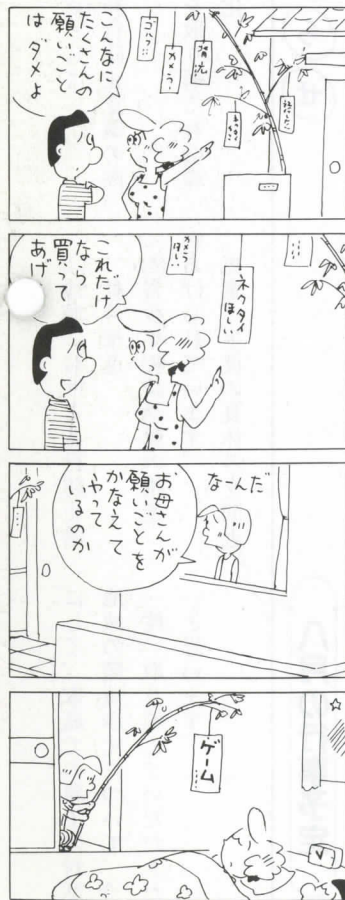 こんなに
たくさんの
願いごと
は ダメよ
ゴルフ
カメラ
これだけ
なら
買って
あげ
カメラ
ほし
ネクタイ
ほしい
なーんだ
お母さんが
願いごとを
かなえて
やって
いるのか
ゲーム